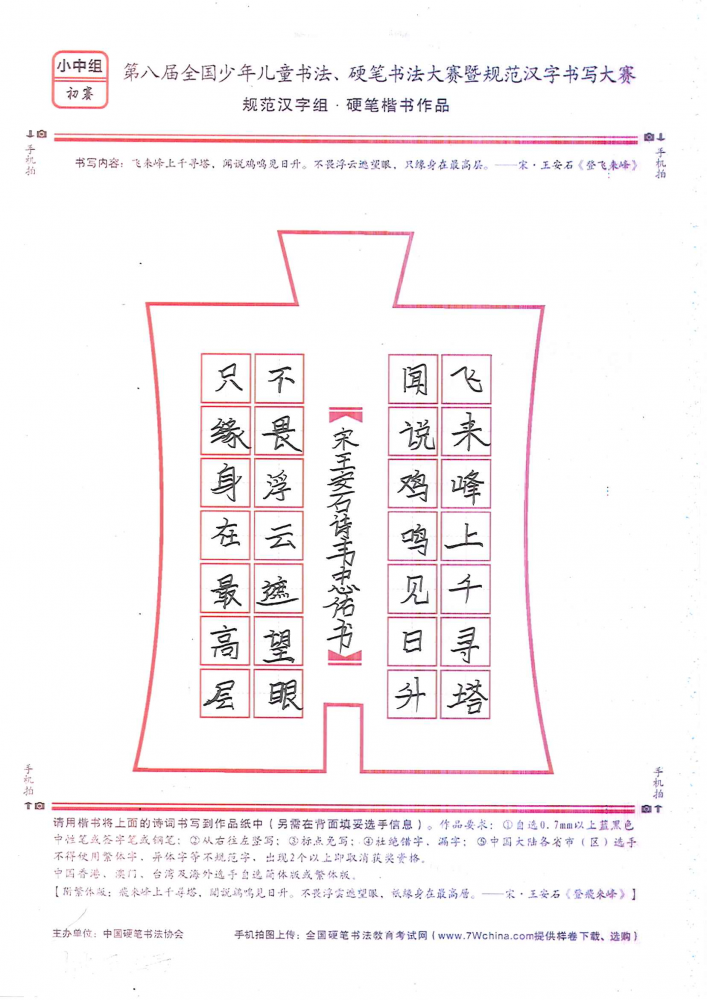 小中组
初赛
第八届全国少年儿童书法、硬笔书法大赛暨规范汉字书写大赛
规范汉字组·硬笔楷书作品
手机拍
手机拍
书写内容：飞来峰上千寻塔，闻说鸡鸣见日升。不畏浮云遮望眼，只缘身在最高层。——宋·王安石《登飞来峰》
飞来峰上千寻塔
闻说鸡鸣见日升
宋王安石诗韦忠佑书
不畏浮云遮望眼
只缘身在最高层
手机拍
手机拍
请用楷书将上面的诗词书写到作品纸中（另需在背面填妥选手信息）。作品要求：①自选0.7mm以上蓝黑色
中性笔或签字笔或钢笔；②从右往左竖写；③标点免写；④杜绝错字，漏字；⑤中国大陆各省市（区）选手
不得使用繁体字，异体字等不规范字，出现2个以上即取消获奖资格。
中国香港，澳门，台湾及海外选手自选简体版或繁体版。
【附繁体版：飛来峰上千寻塔，聞説鸡鳴見日昇。不畏浮雲遮望眼，祇缘身在最高層。——宋·王安石《登飛来峰》】
主办单位：中国硬笔书法协会
手机拍图上传：全国硬笔书法教育考试网（www.7Wchina.com提供样卷下载、选购）